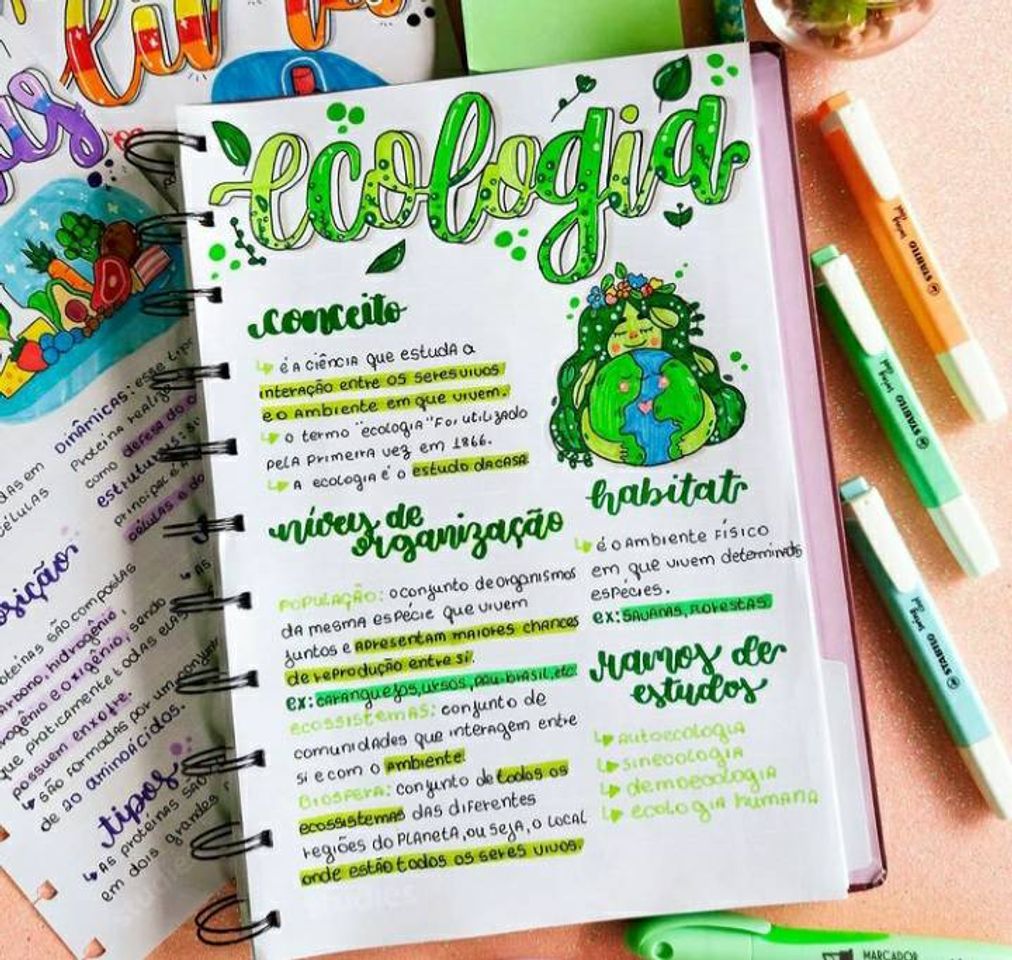 ecologia
conceito
↳ é a ciência que estuda a
interação entre os seres vivos
e o ambiente em que vivem.
↳ o termo "ecologia" foi utilizado
pela primeira vez em 1866.
↳ a ecologia é o estudo da casa
níveis de
organização
população: o conjunto de organismos
da mesma espécie que vivem
juntos e apresentam maiores chances
de reprodução entre si.
ex: caranguejos, ursos, pau-brasil, etc.
ecossistemas: conjunto de
comunidades que interagem entre
si e com o ambiente.
biosfera: conjunto de todos os
ecossistemas das diferentes
regiões do planeta, ou seja, o local
onde estão todos os seres vivos.
habitat
↳ é o ambiente físico
em que vivem determinads
espécies.
ex: savanas, florestas.
ramos de
estudos
↳ autoecologia
↳ sinecologia
↳ demoecologia
↳ ecologia humana
dinâmicas: esse tipo
proteína realiza
como defesa do o
células
composições
arbono, hidrogênio,
rogênio e oxigênio, sendo
que praticamente todas elas
possuem enxofre.
↳ são formadas por um conjunto
de 20 aminoácidos.
tipos
↳ as proteínas são
em dois grandes
STABILO swing cool
STABILO swing cool
STABILO swing cool
MARCADOR
studies